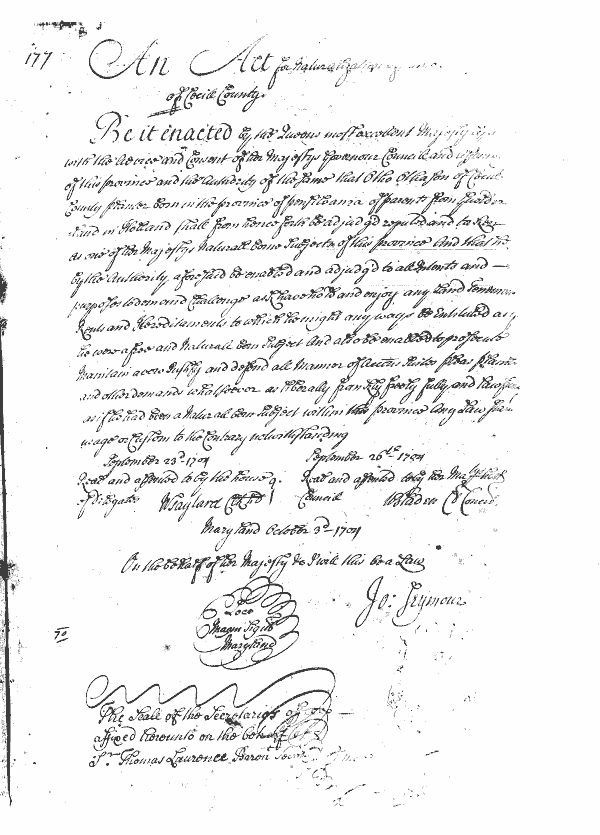 177
An Act for Naturalization
of Cecill County
Be it enacted by the Queens most excellent Majesty by &
with the Advice and Consent of her Majestys Governour Council and
of this province and the Authority of the same that Otho Othason of Cecill
County planter born in the province of pensilvania of parents from
land in Holland shall from henceforth be adjudg'd reputed and
as one of her Majestys Naturall borne Subjects of this province And that he
by the Authority aforesaid be enabled and adjudg'd to all Intents and —
purposes to demand Challenge ask have hold and enjoy any land
Rents and Hereditaments to which he might any ways be Intituled as if
he were a free and Naturall born Subject And also be enabled to prosecute
Maintain avow Justify and defend all Manner of Actions Suites pleas plaints
and other demands whatsoever as liberally frankly freely fully and lawfully
as if he had been a Naturall born Subject within this province Any Law
usage or Custom to the Contrary notwithstanding
September 23d 1704 September 26th 1704
Read and assented to by the house Read and assented to by her Majestys
of delegates W Taylard Council W Bladen Cl Concil
Maryland October 3d 1704
On the behalf of her Majesty &c I will this be a Law
Jo: Seymour
Loco
Magni Sigili
Maryland
The Seale of the Secretarys office
affixed hereunto on the behalf of
Sr. Thomas Laurence Baront